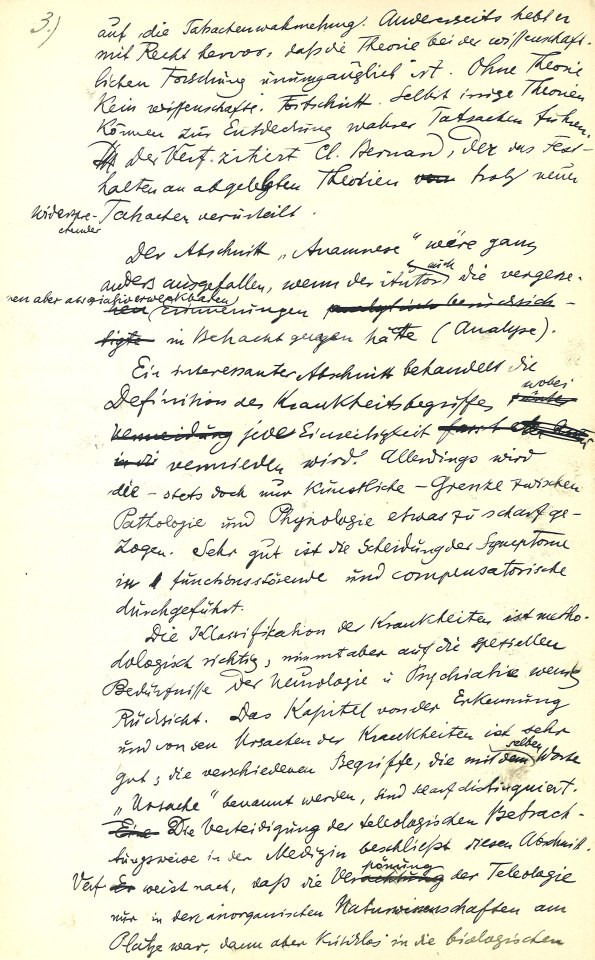 3.)
auf die Tatsachenwahrnehmung. Anderseits hebt er
mit Recht hervor, daß die Theorie bei der wissenschaft-
lichen Forschung unumgänglich ist. Ohne Theorie
kein wissenschaftl. Fortschritt. Selbst irrige Theorien
können zur Entdeckung wahrer Tatsachen führen.
Der Verf. zitiert Cl. Bernard, der das Fest-
halten an abgelebten Theorien von trotz neuer
widerspre-
chender
Tatsachen verurteilt.
Der Abschnitt „Anamnese“ wäre ganz
anders ausgefallen, wenn der Autor auch die vergesse-
nen aber assoziativ erweckbaren
nen Erinnerungen analytisch berücksich-
tigte in Betracht gezogen hätte (Analyse).
Ein interessanter Abschnitt behandelt die
Definition des Krankheitsbegriffes, wobei
Vermeidung jede Einseitigkeit
vermieden wird. Allerdings wird
die – stets doch nur künstliche – Grenze zwischen
Pathologie und Physiologie etwas zu scharf ge-
zogen. Sehr gut ist die Scheidung der Symptome
in functionsstörende und compensatorische
durchgeführt.
Die Klassifikation der Krankheiten ist metho-
dologisch richtig, nimmt aber auf die speziellen
Bedürfnisse der Neurologie u Psychiatrie wenig
Rücksicht. Das Kapitel von der Erkennung
und von den Ursachen der Krankheiten ist sehr
gut; die verschiedenen Begriffe, die mit demselben Worte
„Ursache“ benannt werden, sind scharf distinguiert.
Eine Die Verteidigung der teleologischen Betrach-
tungsweise in der Medizin beschließt diesen Abschnitt.
Verf Er weist nach, daß die Verpönung der Teleologie
nur in den anorganischen Naturwissenschaften am
Platze war, dann aber kritiklos in die biologischen